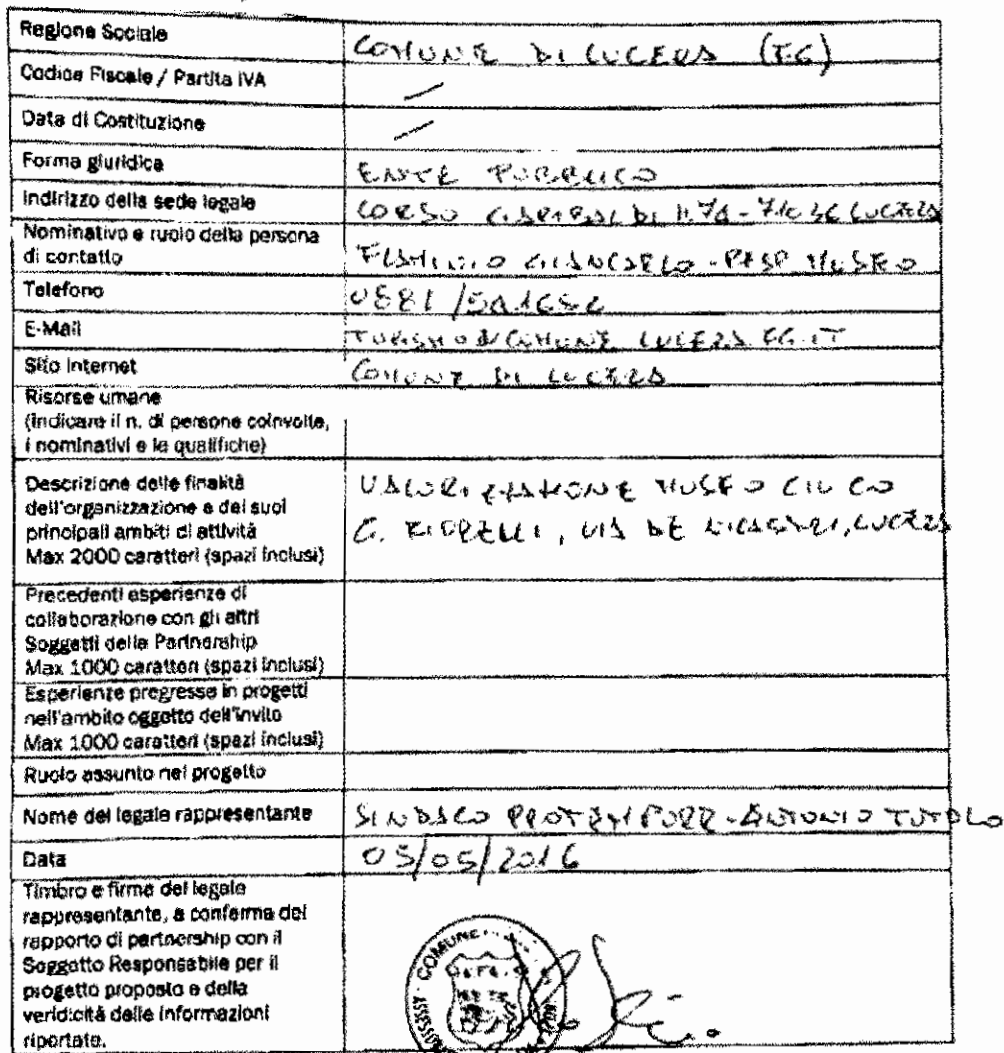 Regione Sociale
COMUNE DI LUCERA (FG)
Codice Fiscale / Partita IVA
/
Data di Costituzione
/
Forma giuridica
ENTE PUBBLICO
Indirizzo della sede legale
CORSO GARIBALDI N. 74 - 71036 LUCERA
Nominativo e ruolo della persona
di contatto
FLAMINIO GIANCARLO - RESP MUSEO
Telefono
0881/541
E-Mail
TURISMO@COMUNE.LUCERA.FG.IT
Sito internet
COMUNE DI LUCERA
Risorse umane
(indicare il n. di persone coinvolte,
i nominativi e le qualifiche)
Descrizione delle finalità
dell'organizzazione e dei suoi
principali ambiti di attività
Max 2000 caratteri (spazi inclusi)
VALORIZZAZIONE MUSEO CIVICO
G. FIORELLI, VIA DE NICASTRI, LUCERA
Precedenti esperienze di
collaborazione con gli altri
Soggetti della Partnership
Max 1000 caratteri (spazi inclusi)
Esperienze pregresse in progetti
nell'ambito oggetto dell'invito
Max 1000 caratteri (spazi inclusi)
Ruolo assunto nel progetto
Nome del legale rappresentante
SINDACO PROTEMPORE - ANTONIO TUTOLO
Data
05/05/2016
Timbro e firma del legale
rappresentante, a conferma del
rapporto di partnership con il
Soggetto Responsabile per il
progetto proposto e della
veridicità delle informazioni
riportate.
COMUNE